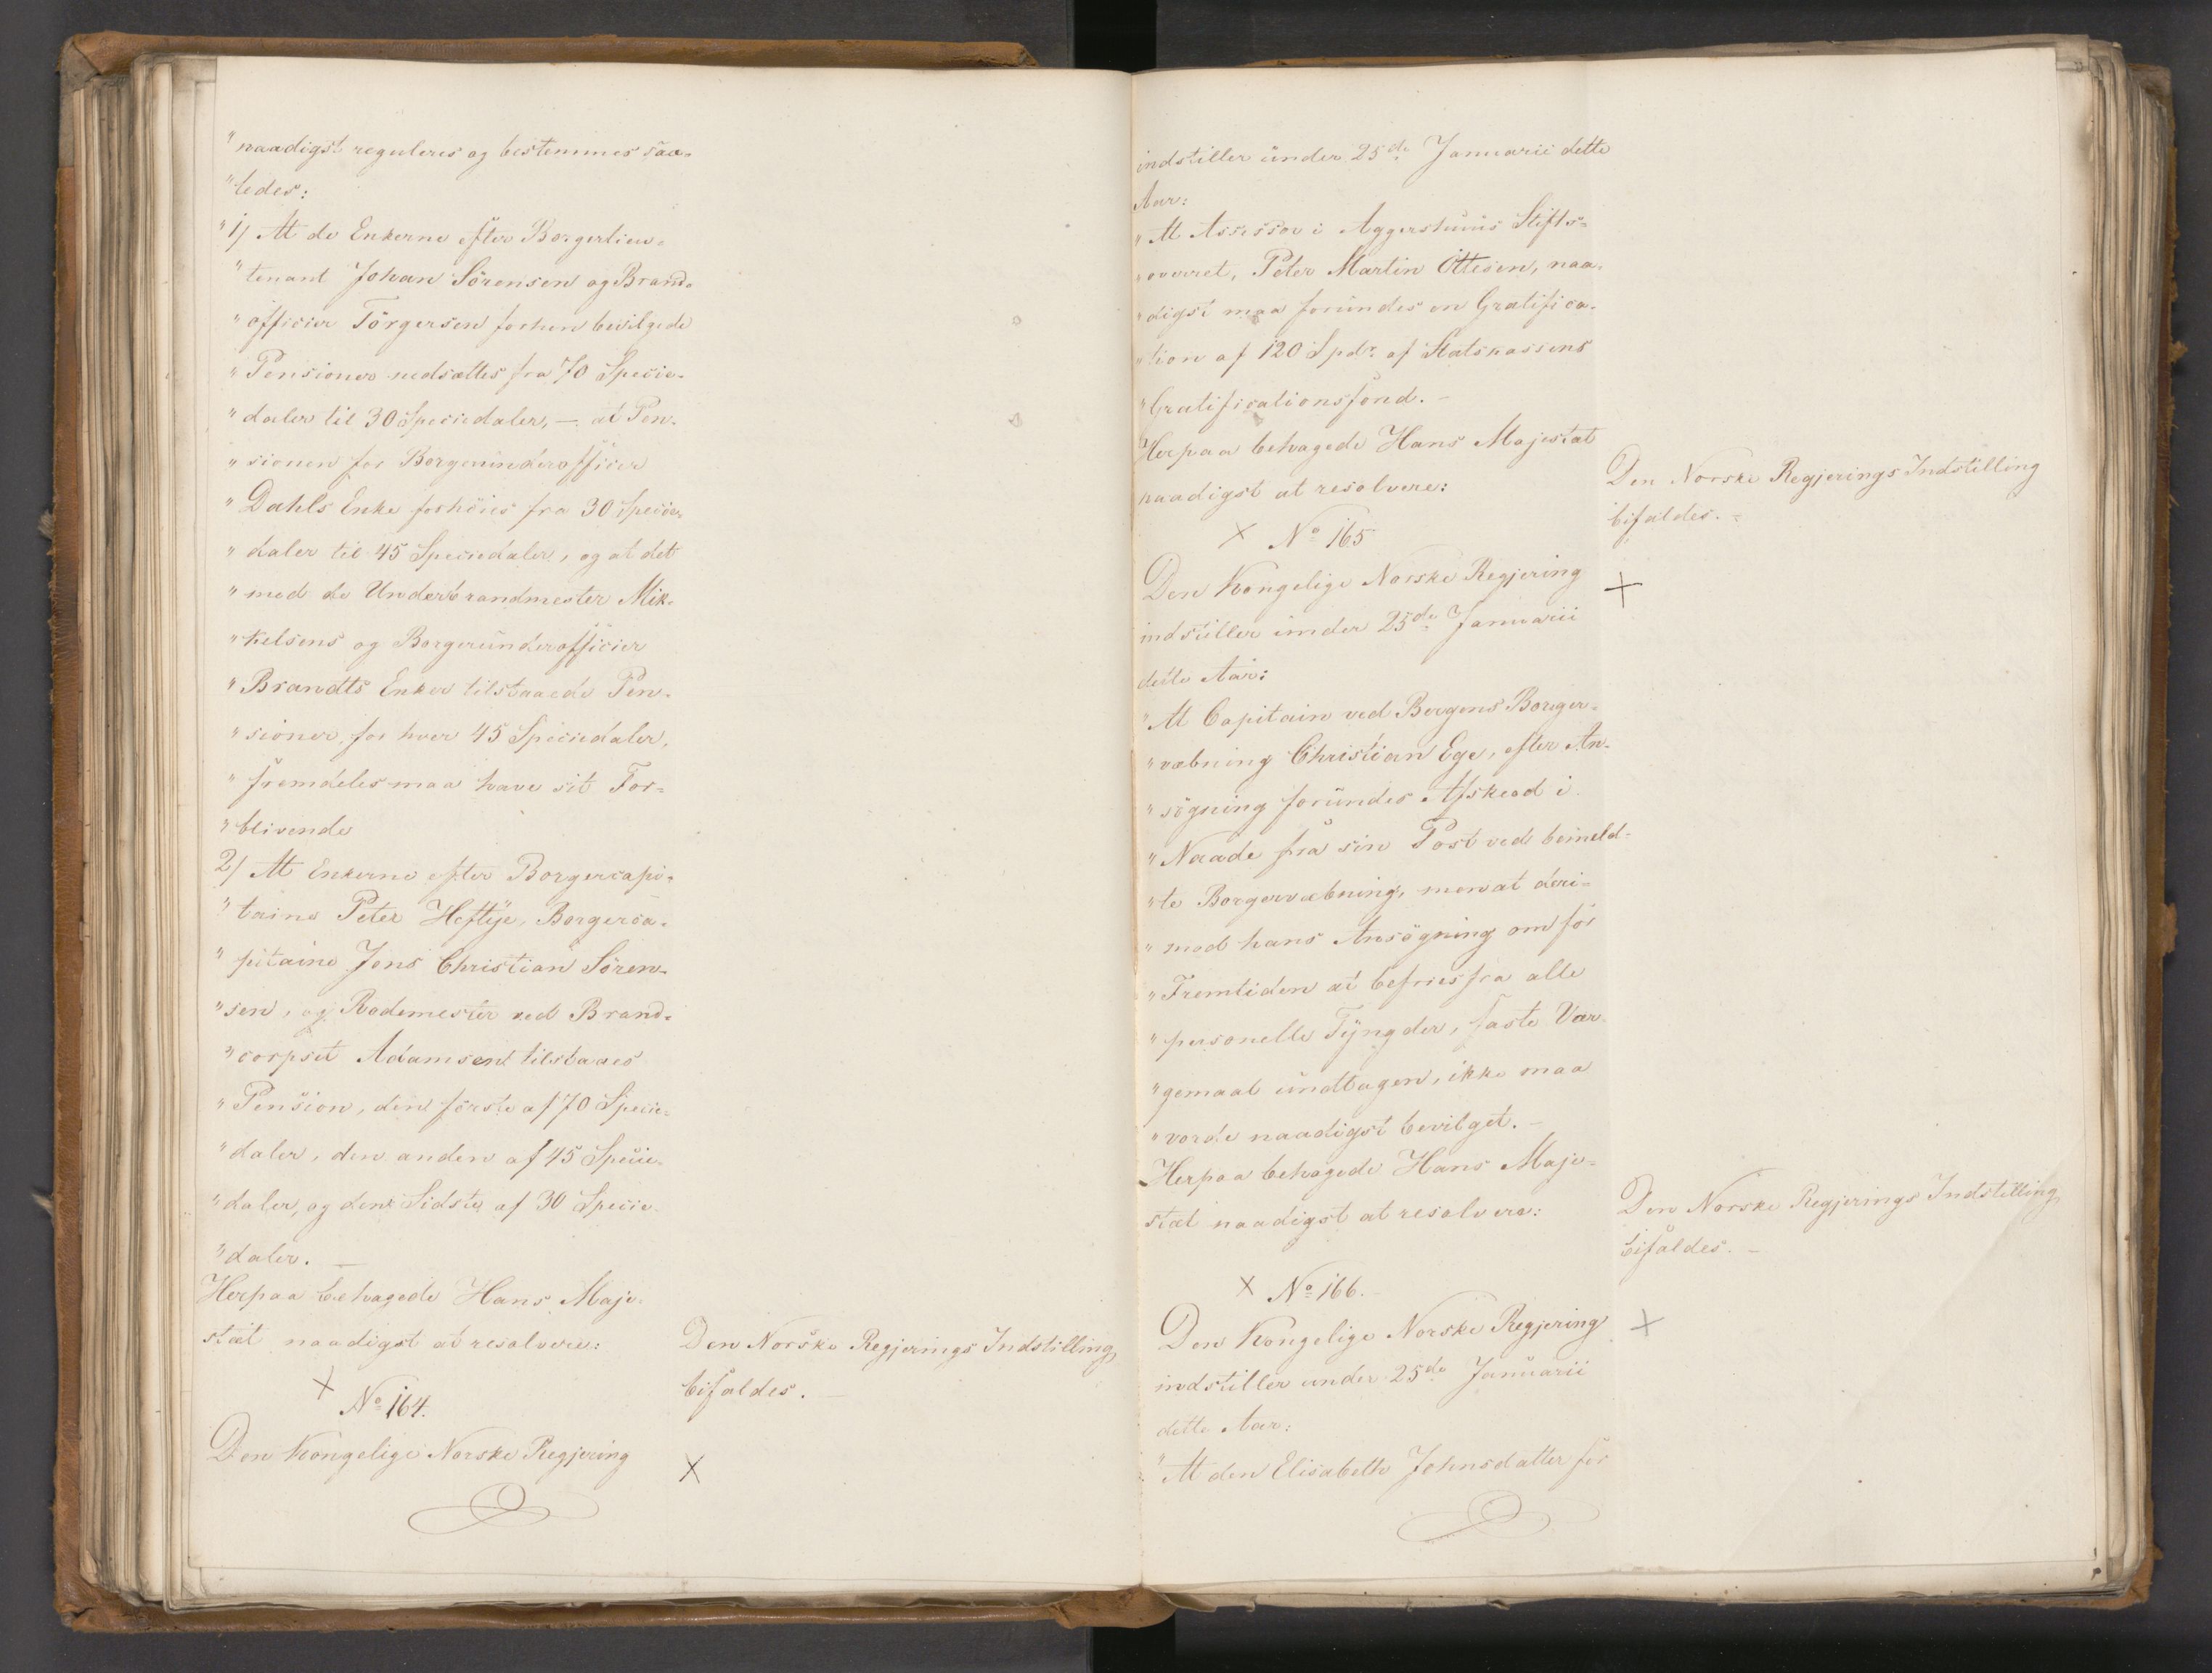 "naadigst reguleres og bestemmes saa-
"ledes:
"1/ At de Enkerne efter Borgerlieu-
"tenant Johan Sörensen og Brand-
"officier Törgersen forhen bevilgede
"Pensioner nedsættes fra 70 Specie-
"daler til 30 Speciedaler, – at Pen-
"sionen for Borgerunderofficier
"Dahls Enke forhöies fra 30 Specie-
"daler til 45 Speciedaler, og at det
"med de Underbrandmester Mik-
"kelsens og Borgerunderofficier
"Brandtts Enker tilstaaede Pen-
"sioner, for hver 45 Speciedaler,
"fremdeles maa have sit For-
"blivende
2/ At Enkerne efter Borgercapi-
"taine Peter Heftÿe, Borgerca-
"pitaine Jens Christian Sören-
"sen, og Rodemester ved Brand-
"corpset Adamsen tilstaaes
"Pension, den förste af 70 Specie-
"daler, den anden af 45 Specie-
"daler, og den Sidste af 30 Specie-
"daler. –
Herpaa behagede Hans Maje-
stæt naadigst at resolvere:
Den Norske Regjerings Indstilling
bifaldes. –
× No 164.
Den Kongelige Norske Regjering
×
indstiller under 25de Januarii dette
Aar:
"At Assessor i Aggershuus Stifts-
"overret, Peter Martin Ottesen, naa-
"digst maa forundes en Gratifica-
"tion af 120 Spdr. af Statskassens
"Gratificationsfond. –
Herpaa behagede Hans Majestæt
naadigst at resolvere:
Den Norske Regjerings Indstilling
bifaldes. –
× No 165
Den Kongelige Norske Regjering
×
indstiller under 25de Januarii
dette Aar:
"At Capitain ved Bergens Borger-
"væbning Christian Ege, efter An-
"sögning forundes Afskeed i
"Naade fra sin Post ved bemeld-
"te Borgervæbning, men at deri-
"mod hans Ansögning om for
"Fremtiden at befries fra alle
"personelle Tÿngder, faste Vær-
"gemaal undtagen, ikke maa
"vorde naadigst bevilget. –
Herpaa behagede Hans Maje-
stæt naadigst at resolvere:
Den Norske Regjerings Indstilling
bifaldes. –
× No 166. –
Den Kongelige Norske Regjering
×
indstiller under 25de Januarii
dette Aar:
"At den Elisabeth Johnsdatter for